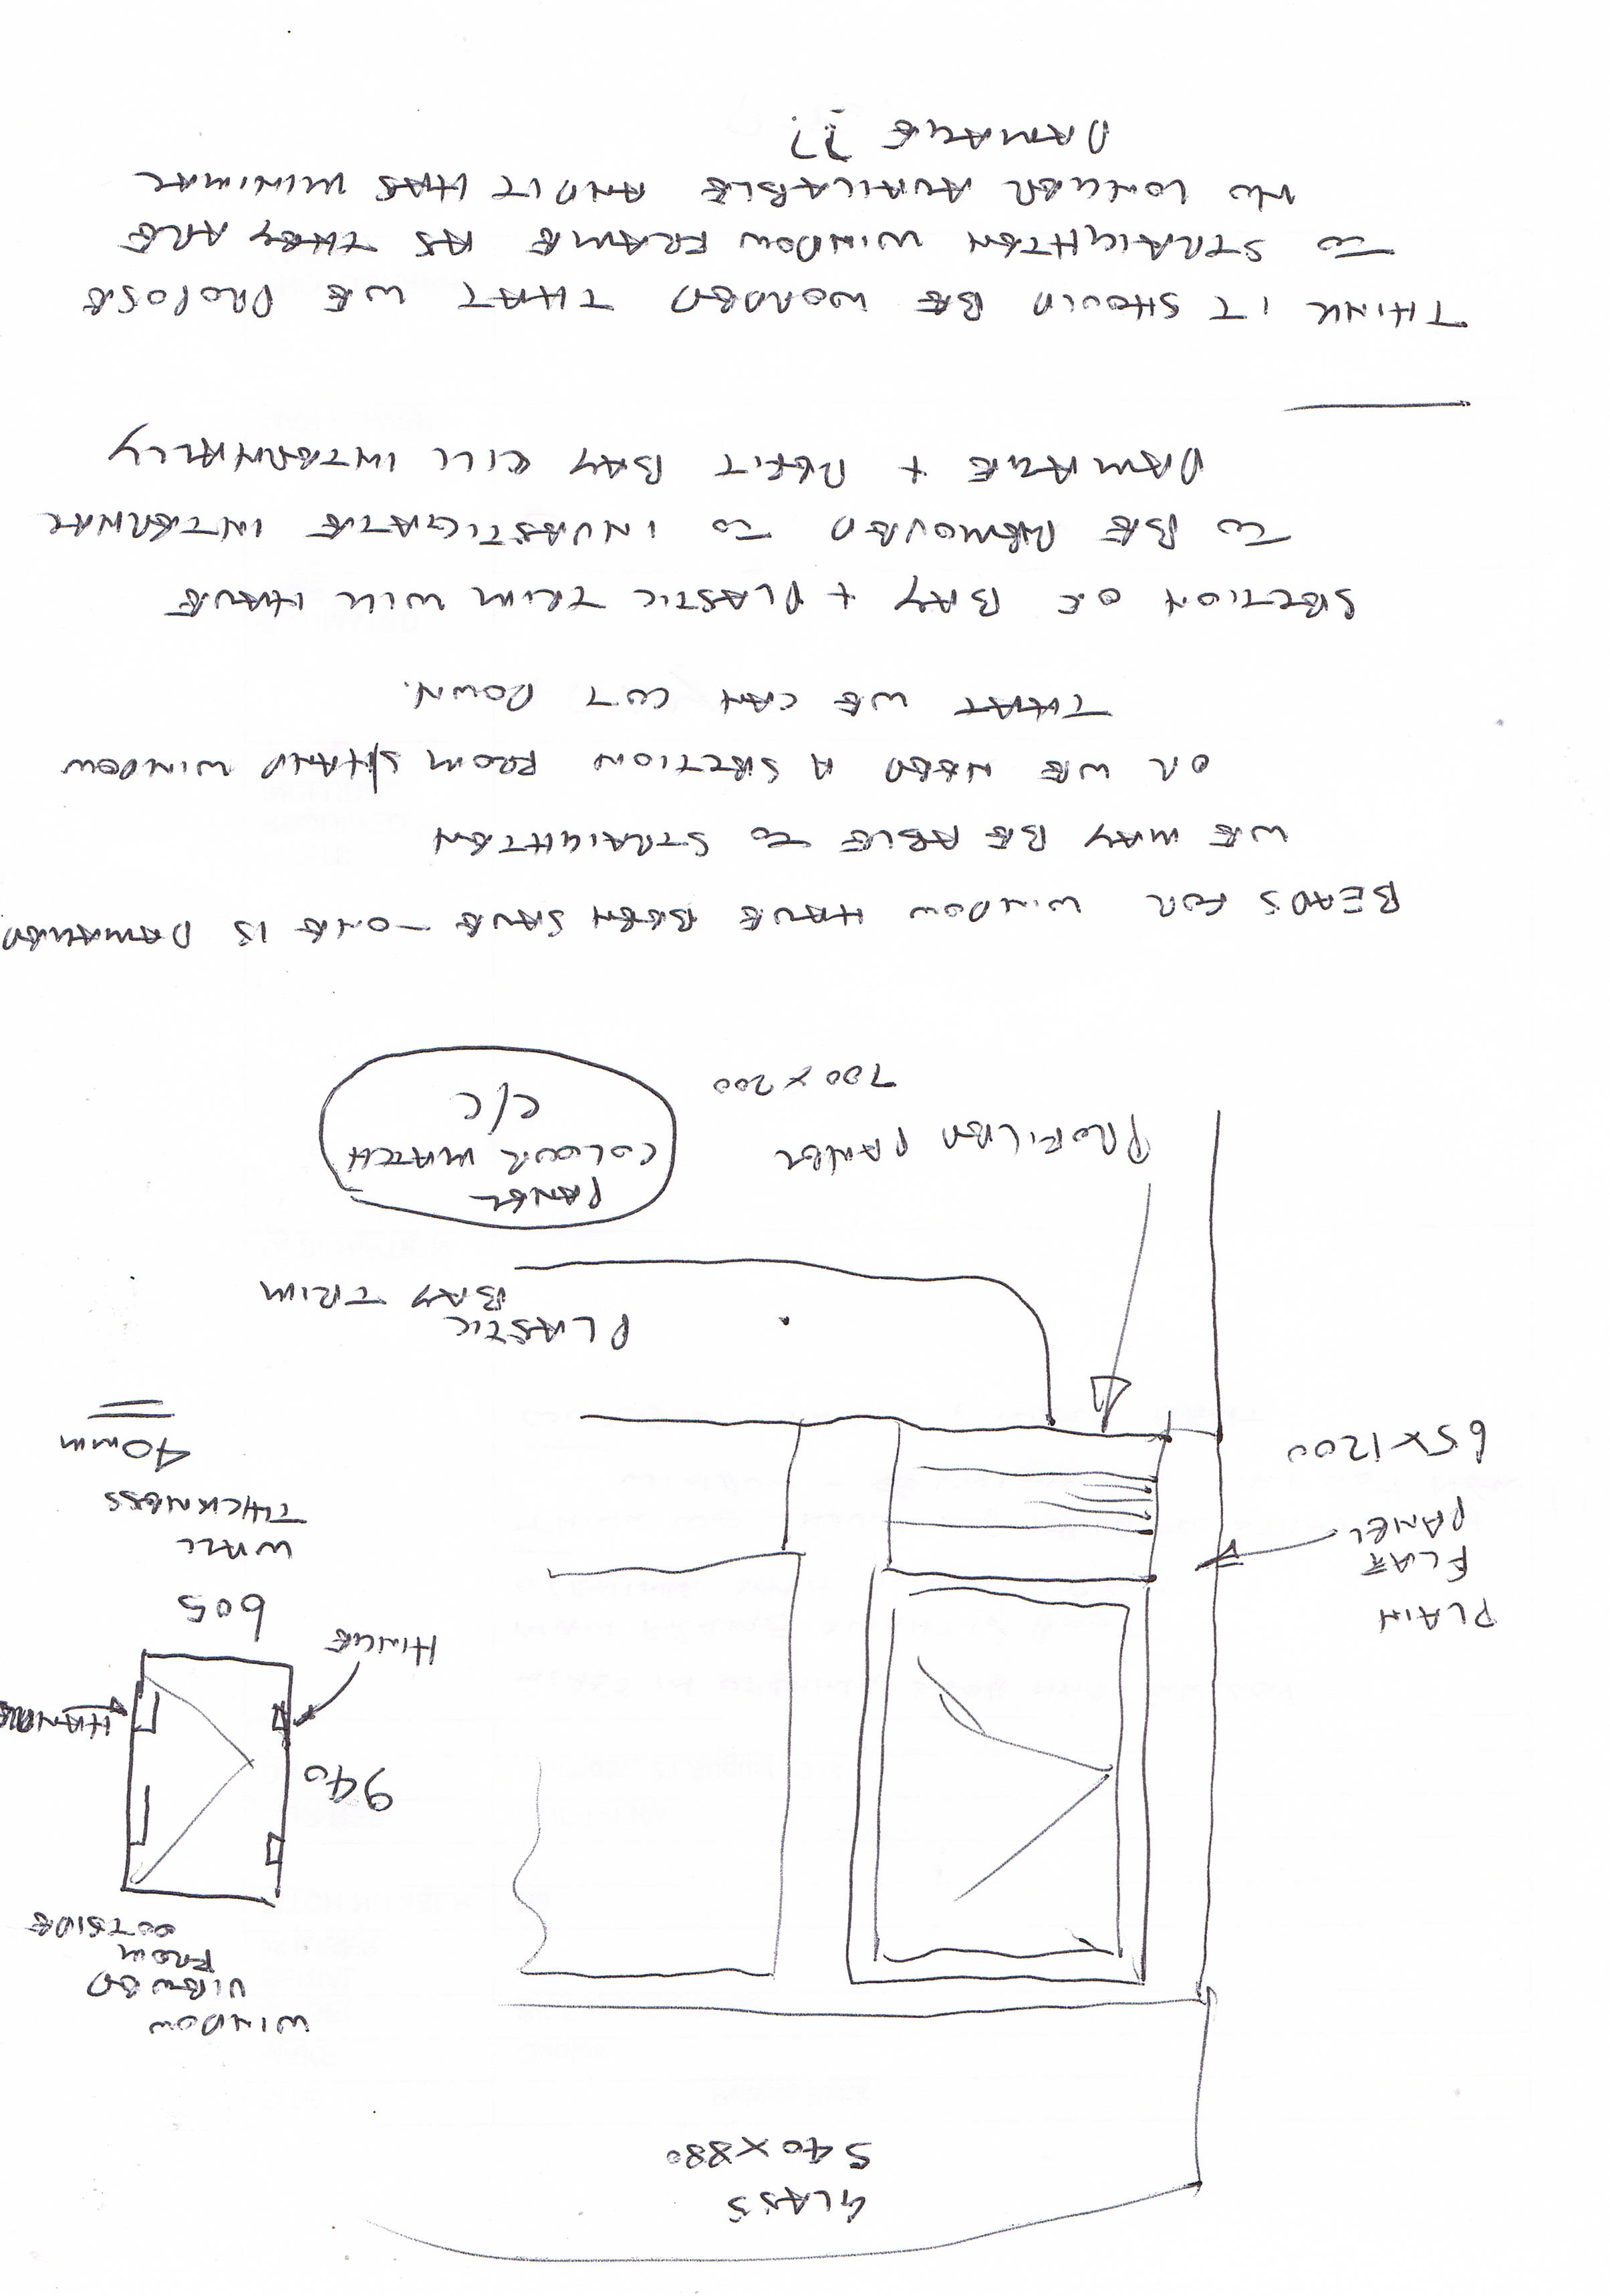 GLASS
540 x 880
WINDOW
VIEWED
FROM
OUTSIDE
940
HANDLE
HINGE
605
PLAIN
FLAT
PANEL
65 x 1200
WALL
THICKNESS
40mm
PLASTIC
BAY TRIM
PROFILED PANEL
700 x 200
PANEL
COLOUR MATCH
C/C
BEADS FOR WINDOW HAVE BEEN SAVE - ONE IS DAMAGED
WE MAY BE ABLE TO STRAIGHTEN
OR WE NEED A SECTION FROM S/HAND WINDOW
THAT WE CAN CUT DOWN.
SECTION OF BAY + PLASTIC TRIM WILL HAVE
TO BE REMOVED TO INVESTIGATE INTERNAL
DAMAGE + REFIT BAY CILL INTERNALLY
THINK IT SHOULD BE WORDED THAT WE PROPOSE
TO STRAIGHTEN WINDOW FRAME AS THEY ARE
NO LONGER AVAILABLE AND IT HAS MINIMAL
DAMAGE ??